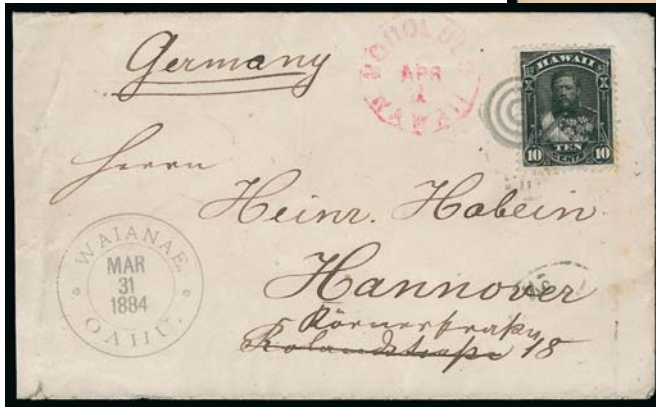 Germany
HONOLULU
APR
1
HAWAII
HAWAII
TEN
10 CENTS 10
Herrn
Heinr. Habein
Hannover
Körnerstraße
Rolandstraße 18
WAIANAE.
MAR
31
1884
OAHU.